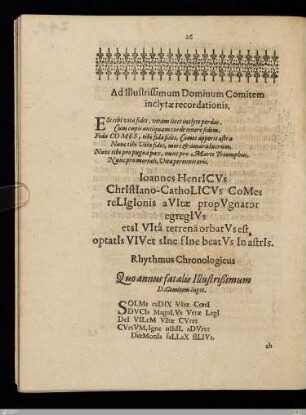 26
Ad Illustrissimum Dominum Comitem
inclytæ recordationis.
Est tibi vera fides, veram licet inclyte perdas,
Cum cupis antiquam corde tenere fidem.
Fida COMES, tibi fida fides, Comes apparet astra
Nunc tibi Vita fides, mors & amara lucrum.
Nunc tibi pro pugna pax, nunc pro Marte Triumphus,
Nunc pro mortali, Vita perennis erit.
Ioannes HenrICVs
ChrIStIano-CathoLICVs CoMes
reLIgIonIs aVItæ propVgnator
egregIVs
etsI VItâ terrenâ orbatVs est,
optatIs VIVet sIne fIne beatVs In astrIs.
Rhythmus Chronologicus
Quo annus fatalis Illustrissimum
D. Comitem luget.
SOLMs raDIX
DVCIs MagnI, Vs Vrtæ LegI
DeI VILeM VItæ CVret
CVrsVM, Igne nIhIL aDVret
DæMonIs faLLaX fILIVs.
ab